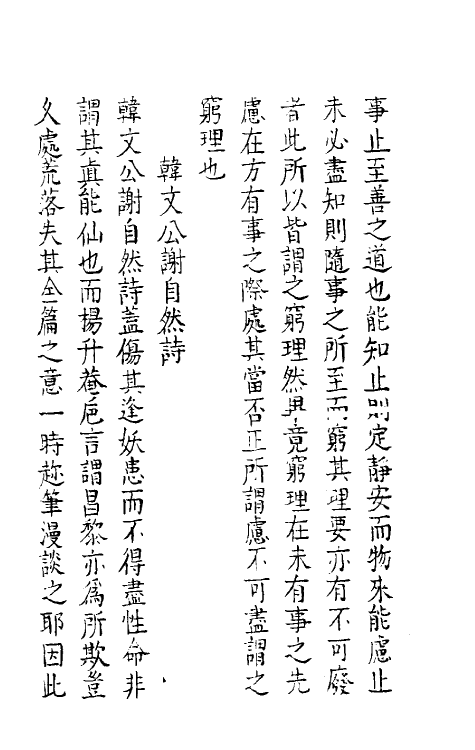 事止至善之道也能知止則定靜安而物來能慮止
未必盡知則隨事之所至而窮其理要亦有不可廢
者此所以皆謂之窮理然畢竟窮理在未有事之先
慮在方有事之際處其當否正所謂慮不可盡謂之
窮理也
韓文公謝自然詩
韓文公謝自然詩蓋傷其逢妖患而不得盡性命非
謂其眞能仙也而楊升菴巵言謂昌黎亦爲所欺豈
久處荒落失其全篇之意一時趂筆漫談之耶因此